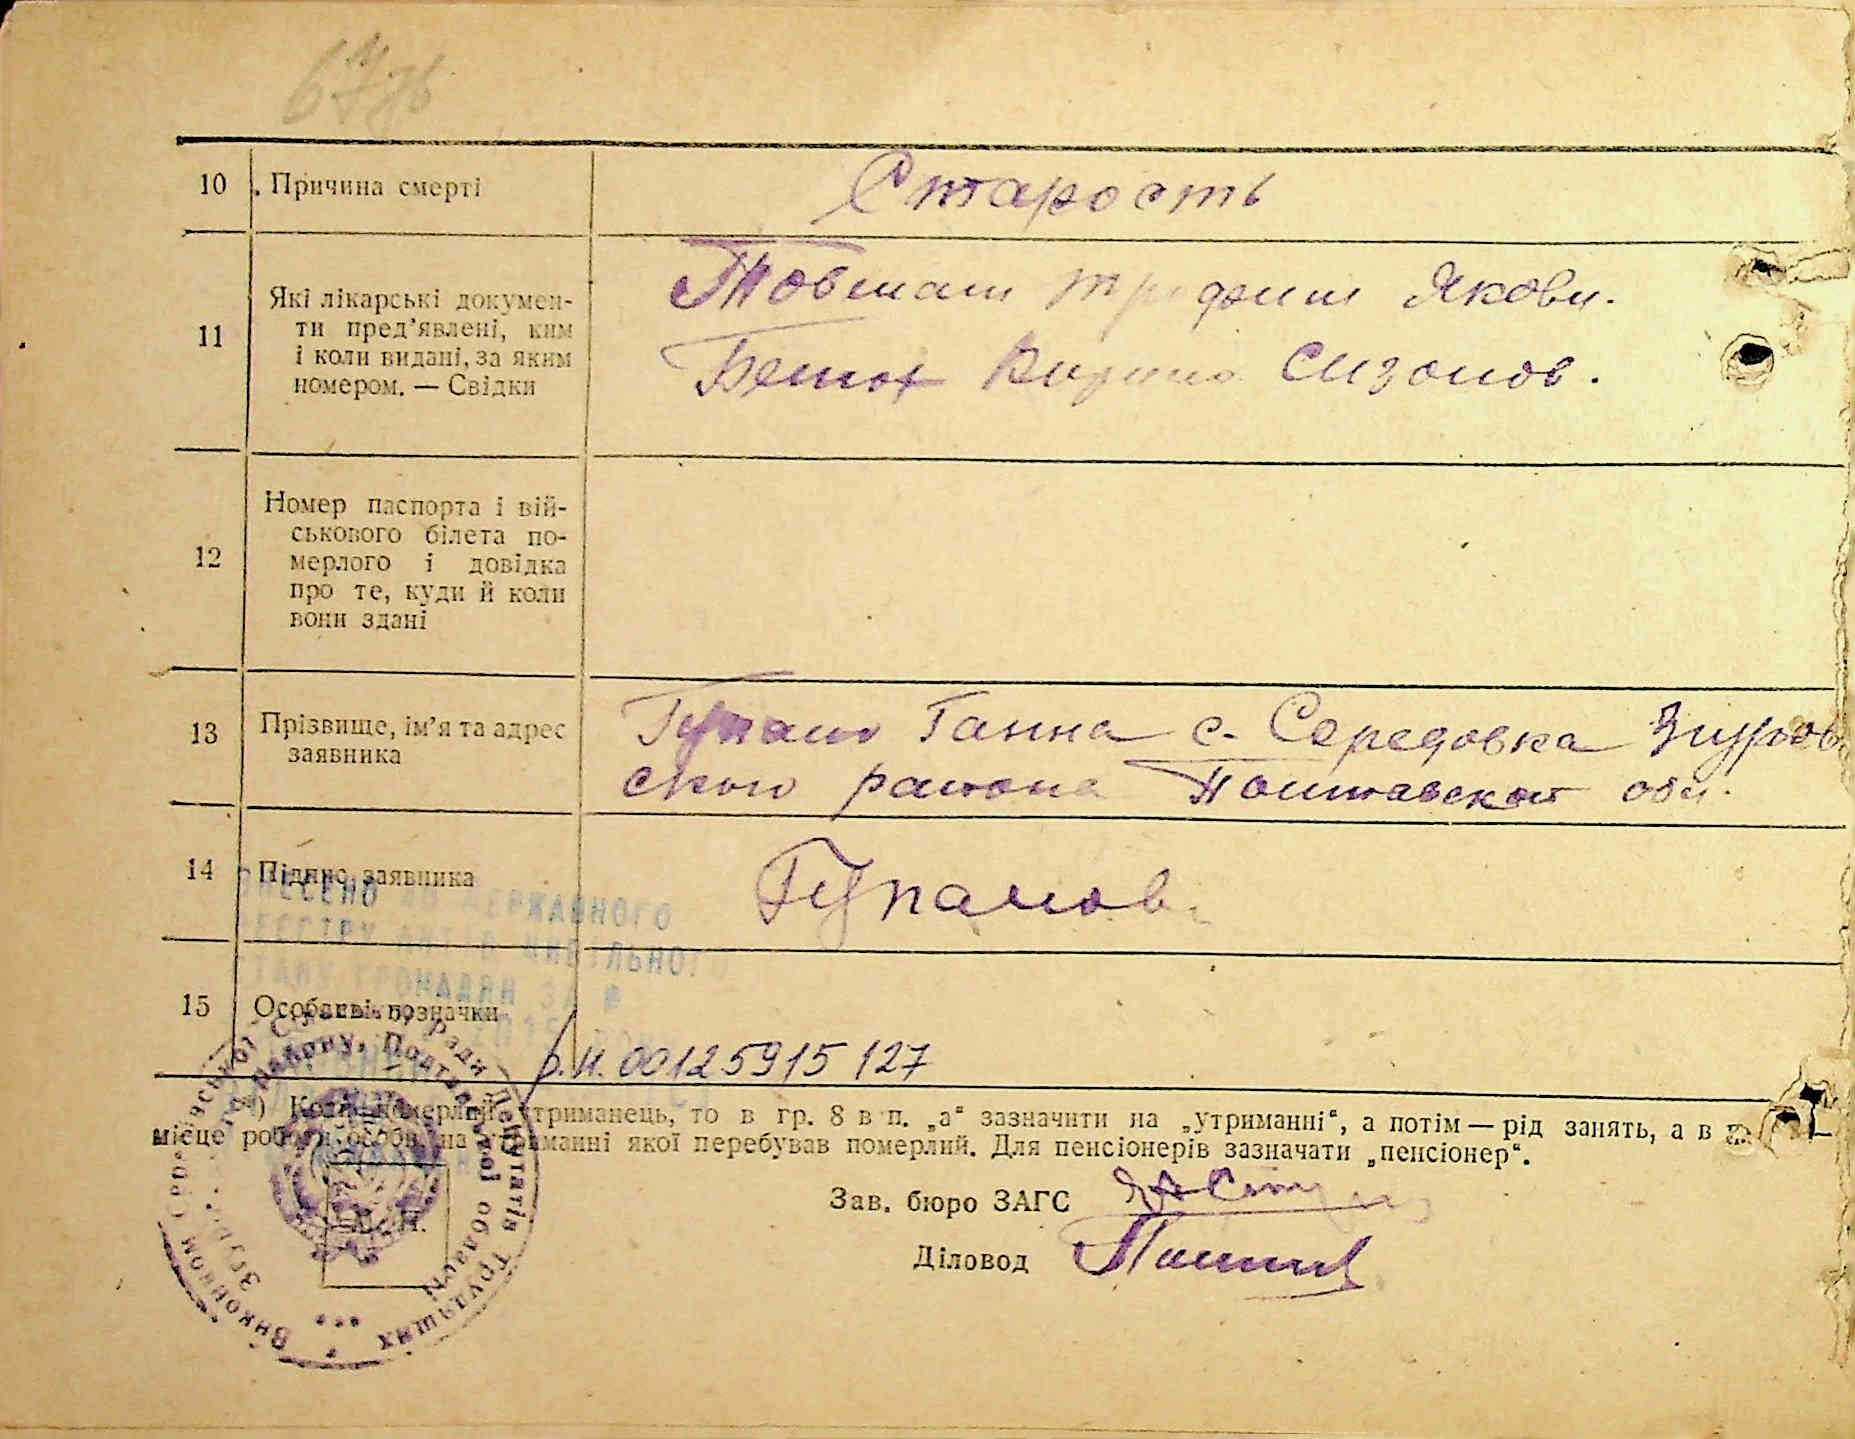 10 Причина смерті Старость
11 Які лікарські докумен-
ти пред'явлені, ким
і коли видані, за яким
номером. — Свідки
Якови.
Сизонов.
12 Номер паспорта і вій-
ськового білета по-
мерлого і довідка
про те, куди й коли
вони здані
13 Прізвище, ім'я та адрес
заявника
Ганна с. Середовка Згуров
ского района Полтавской обл.
14 Підпис заявника
ВНЕСЕНО ДО ДЕРЖАВНОГО
РЕЄСТРУ АКТІВ ЦИВІЛЬНОГО
СТАНУ ГРОМАДЯН ЗА №
15 Особливі позначки
р.н. 00125915127
*) Коли померлий утриманець, то в гр. 8 в п. „а“ зазначити на „утриманні“, а потім — рід занять, а в
місце роботи особи, на утриманні якої перебував померлий. Для пенсіонерів зазначати „пенсіонер“.
Зав. бюро ЗАГС
Діловод
М. П.
Виконком Ради Депутатів Трудящих
району, Полтавської області